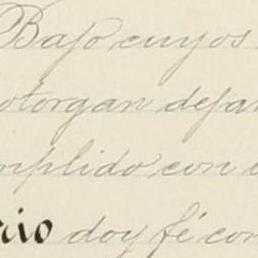 Bajo cuyos
otorgan dejan
mplido con
rio doy fé con